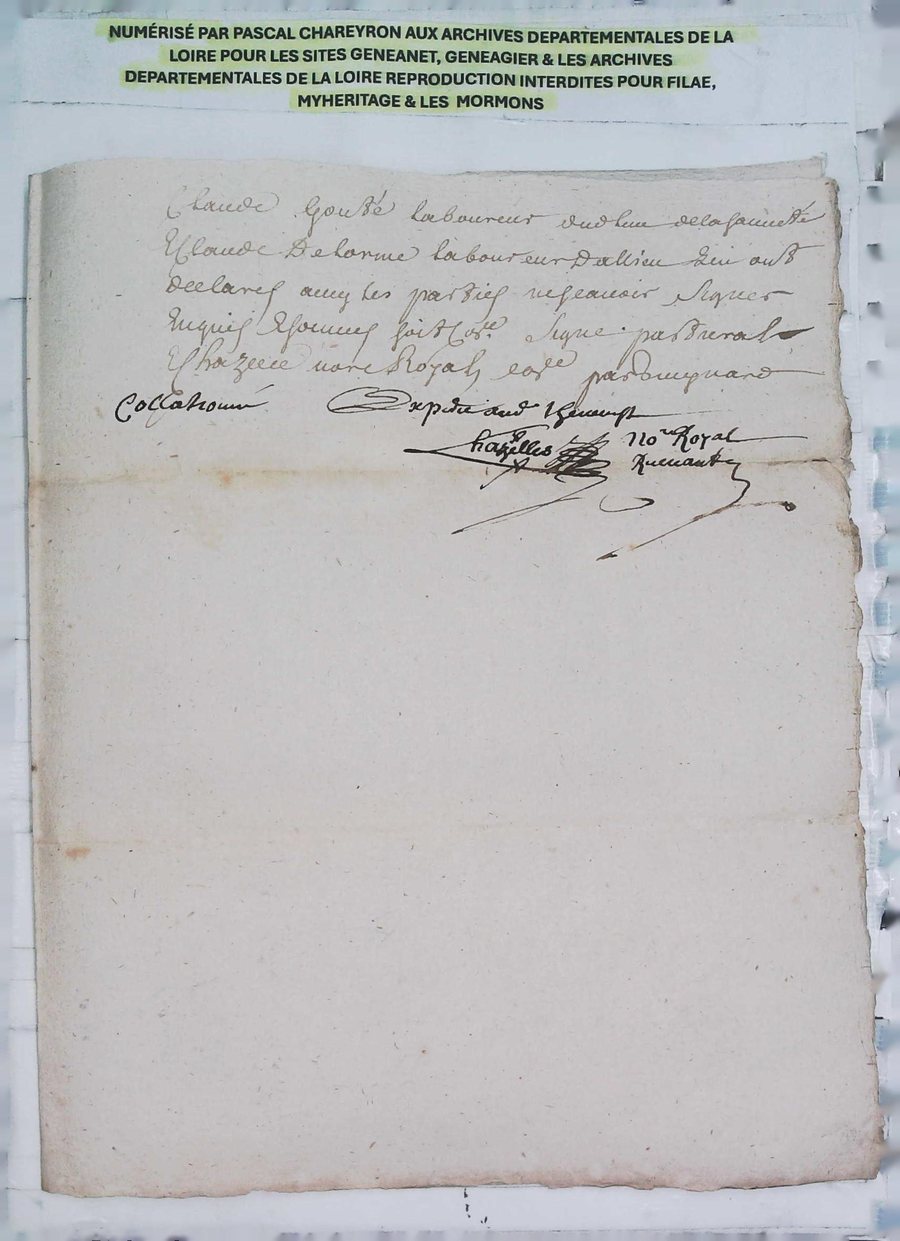 NUMÉRISÉ PAR PASCAL CHAREYRON AUX ARCHIVES DEPARTEMENTALES DE LA
LOIRE POUR LES SITES GENEANET, GENEAGIER & LES ARCHIVES
DEPARTEMENTALES DE LA LOIRE REPRODUCTION INTERDITES POUR FILAE,
MYHERITAGE & LES MORMONS
Claude Gouté laboureur dud lieu
Claude Delorme laboureur Dallieu qui ont
declares avey les parties ne scavoir signer
Enquis Signe pastural
Chazelle nore Royal par
Collationné Expedie aud
Chazelles No.re Royal